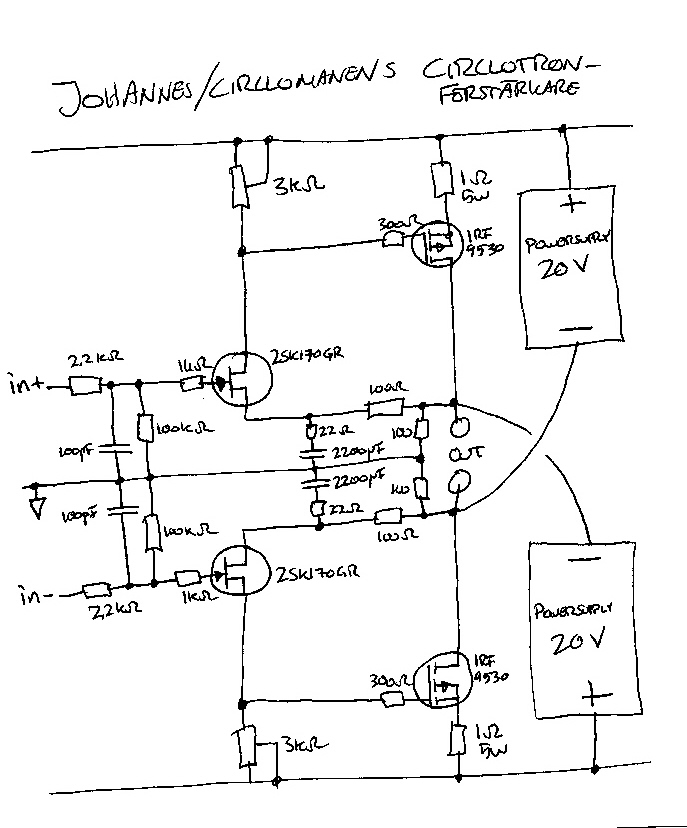 JOHANNES/CIRCLOMANENS CIRCLOTRON-
FÖRSTÄRKARE
3kΩ
1Ω
5W
300Ω
IRF
9530
+
POWERSUPPLY
20V
−
2SK170GR
2,2kΩ
1kΩ
in+
100Ω
100kΩ
22Ω
100
2200pF
OUT
100pF
2200pF
100pF
100kΩ
22Ω
100Ω
2SK170GR
in-
2,2kΩ
1kΩ
−
POWERSUPPLY
20V
+
300Ω
IRF
9530
3kΩ
1Ω
5W